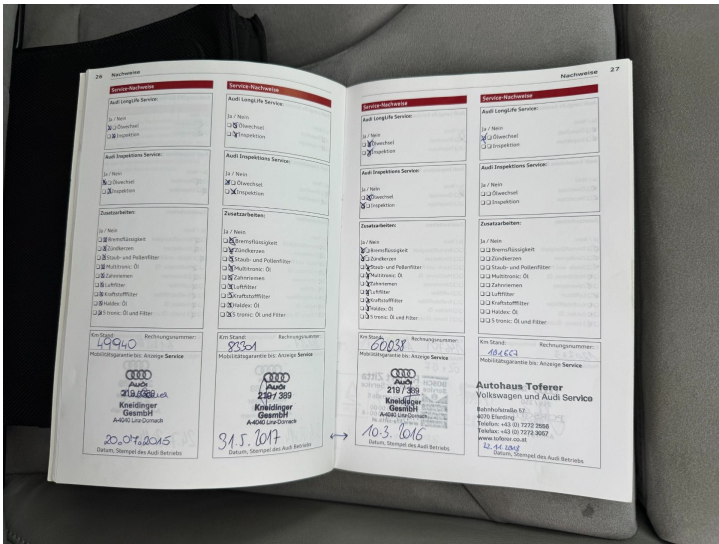 26 Nachweise
Service-Nachweise
Audi LongLife Service:
Ja / Nein
Ölwechsel
Inspektion
Audi Inspektions Service:
Ja / Nein
Ölwechsel
Inspektion
Zusatzarbeiten:
Ja / Nein
Bremsflüssigkeit
Zündkerzen
Staub- und Pollenfilter
Multitronic: Öl
Zahnriemen
Luftfilter
Kraftstofffilter
Haldex: Öl
S tronic: Öl und Filter
Km Stand: Rechnungsnummer:
49940
Mobilitätsgarantie bis: Anzeige Service
Audi
Kneidinger
GesmbH
A-4040 Linz-Dornach
20.07.2015
Datum, Stempel des Audi Betriebs
Service-Nachweise
Audi LongLife Service:
Ja / Nein
Ölwechsel
Inspektion
Audi Inspektions Service:
Ja / Nein
Ölwechsel
Inspektion
Zusatzarbeiten:
Ja / Nein
Bremsflüssigkeit
Zündkerzen
Staub- und Pollenfilter
Multitronic: Öl
Zahnriemen
Luftfilter
Kraftstofffilter
Haldex: Öl
S tronic: Öl und Filter
Km Stand: Rechnungsnummer:
83301
Mobilitätsgarantie bis: Anzeige Service
Audi
219 / 389
Kneidinger
GesmbH
A-4040 Linz-Dornach
31.5.2017
Datum, Stempel des Audi Betriebs
Nachweise 27
Service-Nachweise
Audi LongLife Service:
Ja / Nein
Ölwechsel
Inspektion
Audi Inspektions Service:
Ja / Nein
Ölwechsel
Inspektion
Zusatzarbeiten:
Ja / Nein
Bremsflüssigkeit
Zündkerzen
Staub- und Pollenfilter
Multitronic: Öl
Zahnriemen
Luftfilter
Kraftstofffilter
Haldex: Öl
S tronic: Öl und Filter
Km Stand: Rechnungsnummer:
60038
Mobilitätsgarantie bis: Anzeige Service
Audi
219 / 389
Kneidinger
GesmbH
A-4040 Linz-Dornach
10.3. 2016
Datum, Stempel des Audi Betriebs
Service-Nachweise
Audi LongLife Service:
Ja / Nein
Ölwechsel
Inspektion
Audi Inspektions Service:
Ja / Nein
Ölwechsel
Inspektion
Zusatzarbeiten:
Ja / Nein
Bremsflüssigkeit
Zündkerzen
Staub- und Pollenfilter
Multitronic: Öl
Zahnriemen
Luftfilter
Kraftstofffilter
Haldex: Öl
S tronic: Öl und Filter
Km Stand: Rechnungsnummer:
101667
Mobilitätsgarantie bis: Anzeige Service
Autohaus Toferer
Volkswagen und Audi Service
Bahnhofstraße 57
4070 Eferding
Telefon: +43 (0) 7272 2556
Telefax: +43 (0) 7272 3057
www.toferer.co.at
22.11.2018
Datum, Stempel des Audi Betriebs